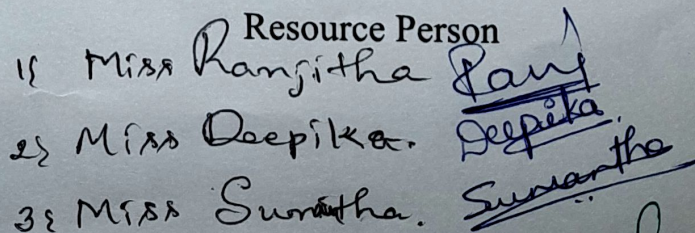 Resource Person
1) Miss Ranjitha
2) Miss Deepika. Deepika
3) Miss Sumantha. Sumantha